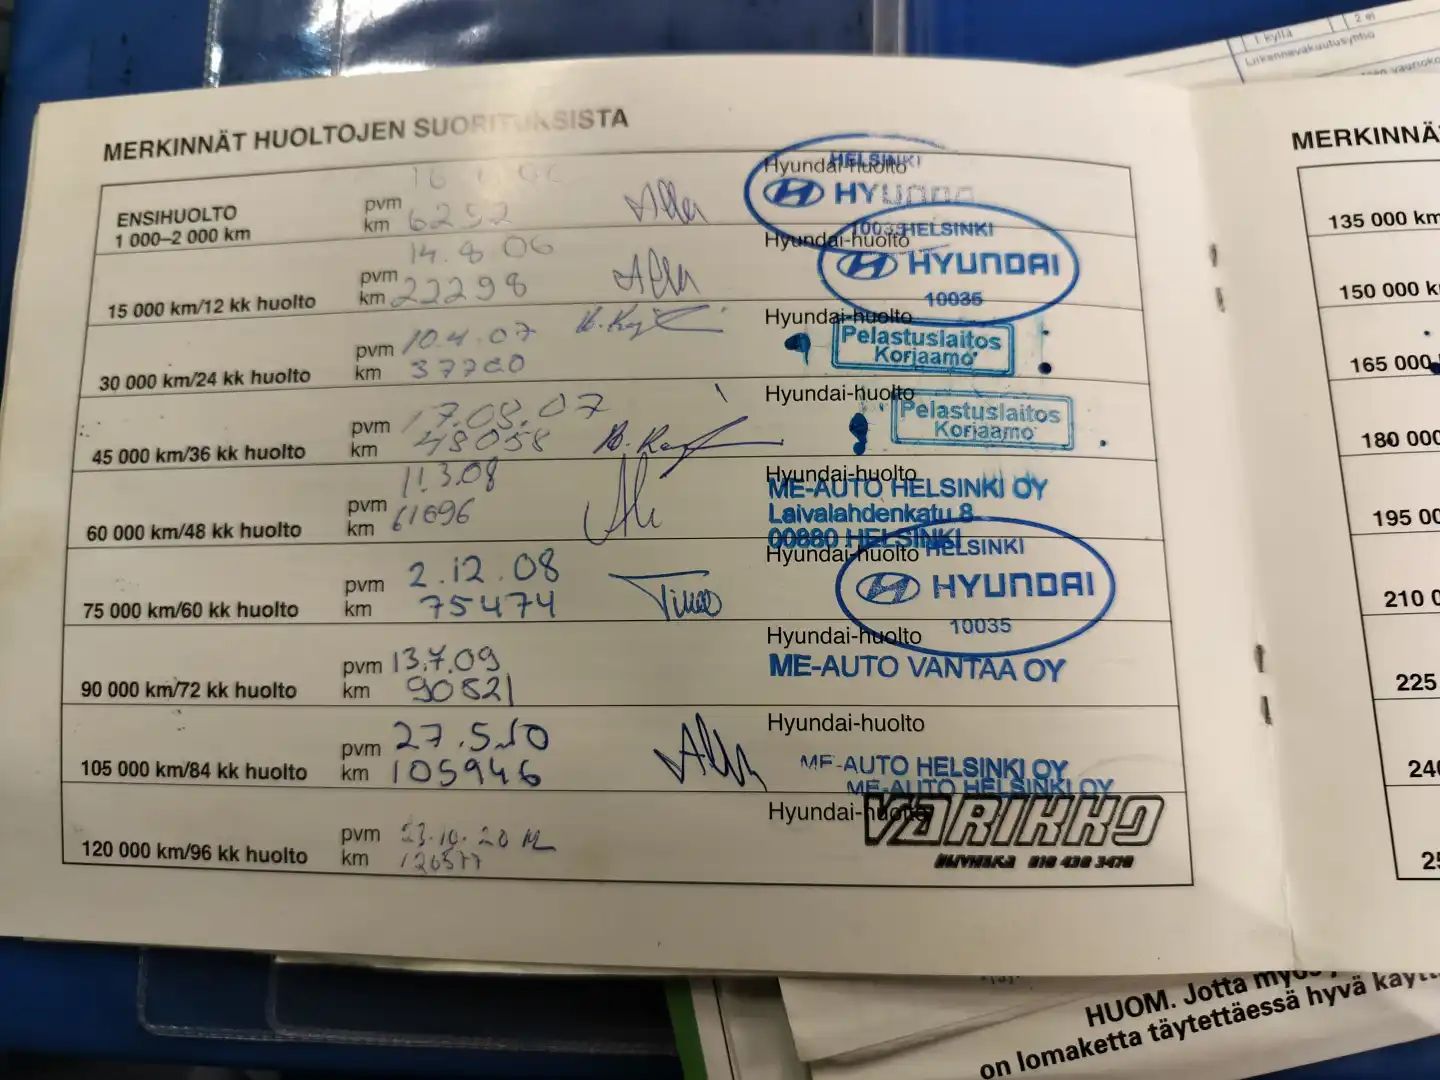 1 kyllä
2 ei
Liikennevakuutusyhtiö
MERKINNÄT HUOLTOJEN SUORITUKSISTA
ENSIHUOLTO
1 000–2 000 km
pvm
km 6252
Hyundai-huolto
HELSINKI
HYUNDAI
10035
15 000 km/12 kk huolto
pvm 14.8.06
km 22298
Hyundai-huolto
HELSINKI
HYUNDAI
10035
30 000 km/24 kk huolto
pvm 10.4.07
km 37720
Hyundai-huolto
Pelastuslaitos
Korjaamo
45 000 km/36 kk huolto
pvm 17.08.07
km 48058
Hyundai-huolto
Pelastuslaitos
Korjaamo
60 000 km/48 kk huolto
pvm 11.3.08
km 61696
Hyundai-huolto
ME-AUTO HELSINKI OY
Laivalahdenkatu 8
00880 HELSINKI
75 000 km/60 kk huolto
pvm 2.12.08
km 75474
Timo
Hyundai-huolto
HELSINKI
HYUNDAI
10035
90 000 km/72 kk huolto
pvm 13.7.09
km 90821
Hyundai-huolto
ME-AUTO VANTAA OY
105 000 km/84 kk huolto
pvm 27.5.10
km 105946
Hyundai-huolto
ME-AUTO HELSINKI OY
ME-AUTO HELSINKI OY
120 000 km/96 kk huolto
pvm 23.10.20
km 120577
Hyundai-huolto
VARIKKO
010 430 3470
MERKINNÄ
135 000 km
150 000 k
165 000
180 000
195 00
210 0
225
240
25
HUOM. Jotta myös
on lomaketta täytettäessä hyvä käytt